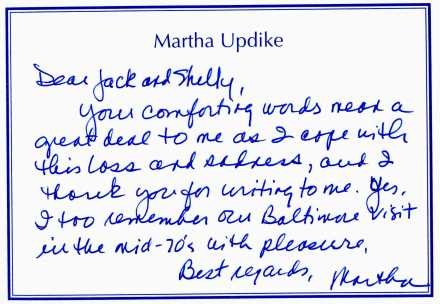 Martha Updike
Dear Jack and Shelly,
Your comforting words mean a
great deal to me as I cope with
this loss and sadness, and I
thank you for writing to me. Yes,
I too remember our Baltimore visit
in the mid-70's with pleasure.
Best regards, Martha